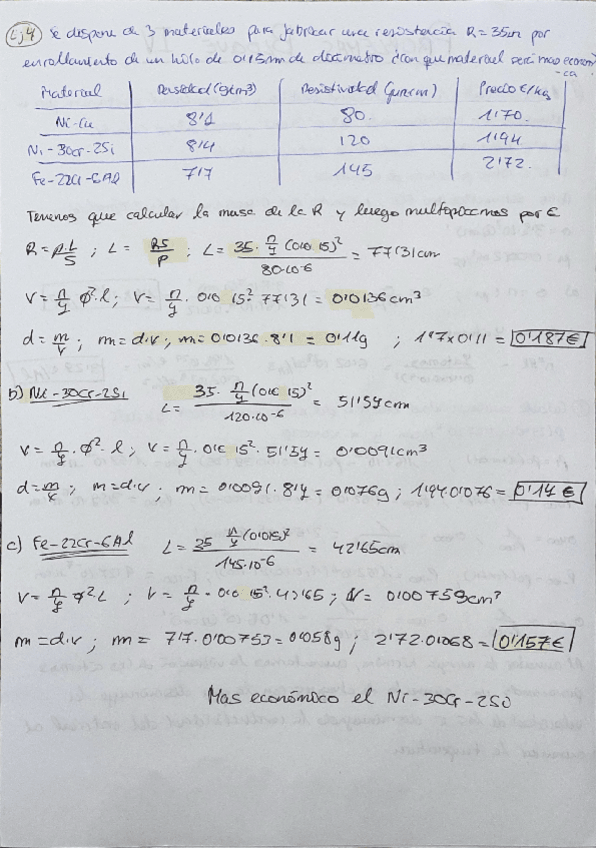 Ej 4 Se dispone de 3 materiales para fabricar una resistencia R = 35Ω por
enrollamiento de un hilo de 0'15mm de diámetro ¿con que material será mas económi
-ca
Material Densidad (g/cm³) Resistividad (μΩcm) Precio €/kg
Ni-Cu 8'1 80. 1'70.
Ni-30Cr-2Si 8'4 120 1'94
Fe-22Cr-6Al 7'7 145 2'72.
Tenemos que calcular la masa de la R y luego multiplicamos por €
R = ρ·L/S ; L = RS/ρ ; L = 35·π/4 (0'015)²/80·10⁻⁶ = 77'31cm
V = π/4 φ²·l ; V = π/4 · 0'015²·77'31 = 0'0136cm³
d = m/V ; m = d·v ; m = 0'0136·8'1 = 0'11g ; 1'7×0'11 = 0'187€
b) Ni-30Cr-2Si L = 35·π/4 (0'015)²/120·10⁻⁶ = 51'54cm
V = π/4·φ²·l ; V = π/4·0'015²·51'54 = 0'0091cm³
d = m/V ; m = d·v ; m = 0'0091·8'4 = 0'076g ; 1'94·0'076 = 0'14€
c) Fe-22Cr-6Al L = 35 π/4 (0'015)²/145·10⁻⁶ = 42'65cm
V = π/4 φ² L ; V = π/4 · 0'015²·42'65 ; V = 0'00759cm³
m = d·v ; m = 7'7·0'00753 = 0'058g ; 2'72·0'068 = 0'157€
Mas económico el Ni-30Cr-2Si